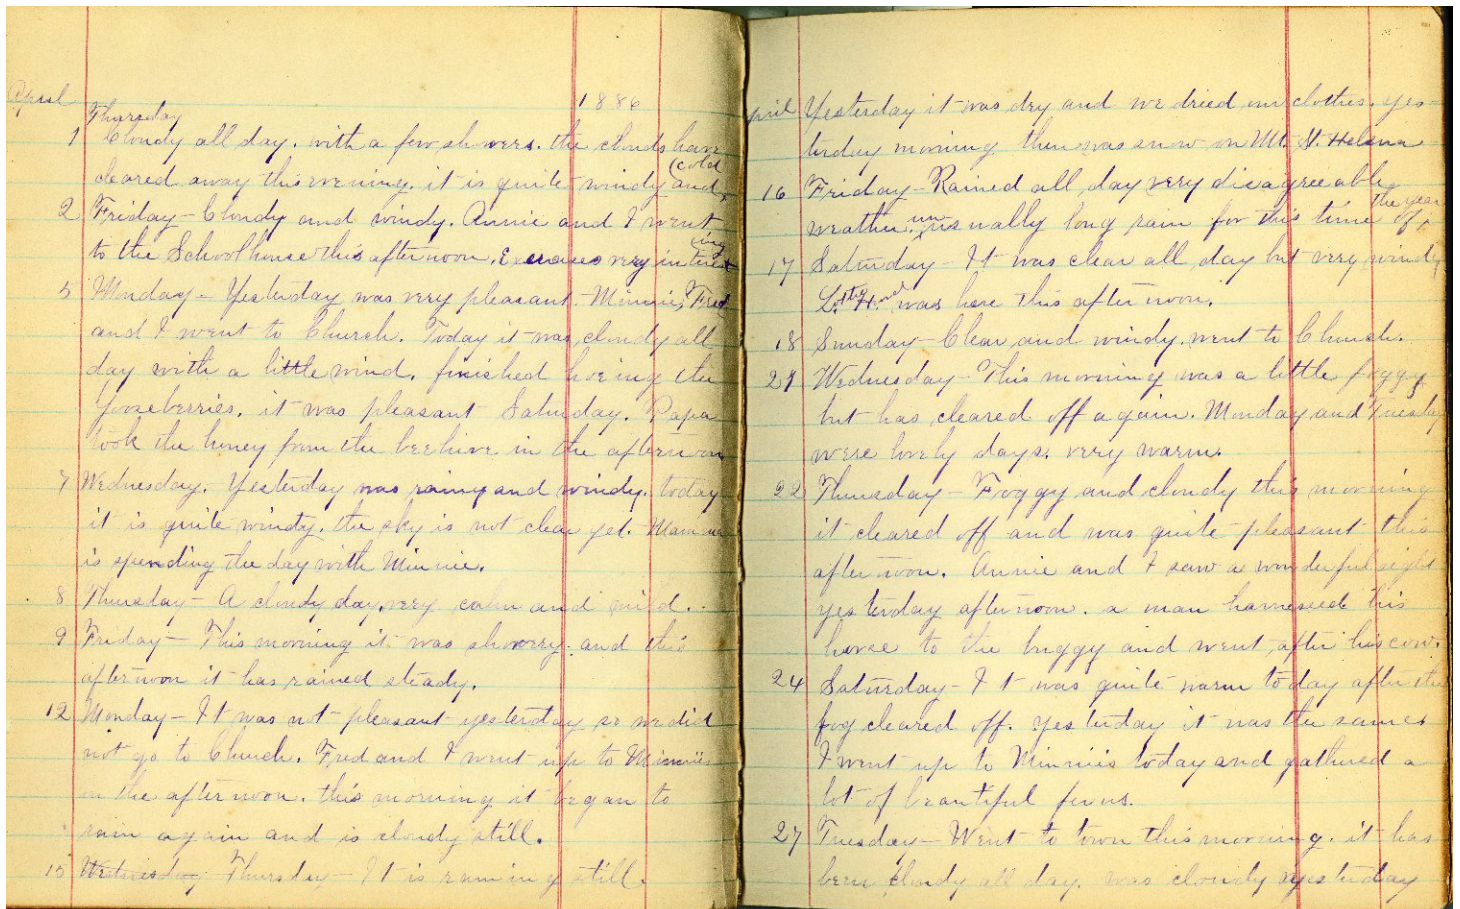 April 1886
Thursday
1 Cloudy all day. with a few showers. the clouds have
(cold
cleared away this evening. it is quite windy and
2 Friday - Cloudy and windy. Annie and I went
to the School house this afternoon. Exercises very interest
(ing
5 Monday - Yesterday was very pleasant. Minnie, Fred
and I went to Church. Today it was cloudy all
day with a little wind. finished hoeing the
gooseberries. it was pleasant Saturday. Papa
took the honey from the beehive in the afternoon
7 Wednesday. Yesterday was rainy and windy. today
it is quite windy. the sky is not clear yet. Mamma
is spending the day with Minnie.
8 Thursday - A cloudy day, very calm and mild.
9 Friday - This morning it was showery. and this
afternoon it has rained steady.
12 Monday - It was not pleasant yesterday so we did
not go to Church. Fred and I went up to Minnies
in the afternoon. this morning it began to
rain again and is cloudy still.
15 Wednesday Thursday - It is raining still.
pril Yesterday it was dry and we dried our clothes. yes-
terday morning there was snow on Mt. St. Helena
16 Friday - Rained all day very disagreeable
the year
weather. unusually long rain for this time of
17 Saturday - It was clear all day but very windy
L. H. was here this afternoon.
18 Sunday - Clear and windy. went to Church.
21 Wednesday - This morning was a little foggy
but has cleared off again. Monday and Tuesday
were lovely days. very warm.
22 Thursday - Foggy and cloudy this morning
it cleared off and was quite pleasant this
afternoon. Annie and I saw a wonderful sight
yesterday afternoon. a man harnessed his
horse to the buggy and went after his cow.
24 Saturday - It was quite warm today after the
fog cleared off. yesterday it was the same.
I went up to Minnies today and gathered a
lot of beautiful ferns.
27 Tuesday - Went to town this morning. it has
been cloudy all day. was cloudy yesterday